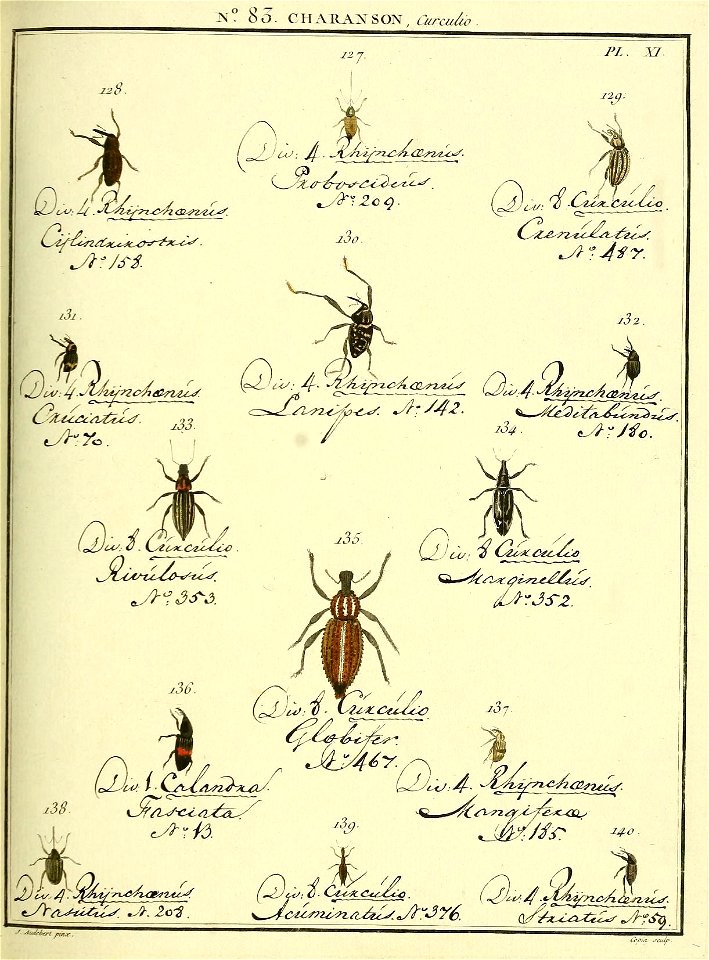 Nº. 83. CHARANSON, Curculio.
PL. XI.
127.
Div: 4. Rhijnchænús.
Proboscidéus.
Nº: 209.
128.
Div: 4. Rhijnchænús.
Cijlindrirostris.
Nº: 158.
129.
Div: 8. Cúrcúlio.
Crenúlatús.
Nº: 487.
130.
Div: 4. Rhijnchænús
Lanipes. Nº: 142.
131.
Div: 4. Rhijnchænús.
Crúciatús.
Nº: 70.
132.
Div: 4. Rhijnchænús.
Méditabúndús.
Nº: 180.
133.
Div: 8. Cúrcúlio.
Rivúlosús.
Nº: 353.
134.
Div: 8 Cúrcúlio
Marginellús.
Nº: 352.
135.
Div: 8. Cúrcúlio.
Globifer.
Nº: 467.
136.
Div: 1. Calandra.
Fasciata.
Nº: 13.
137.
Div: 4. Rhijnchænús.
Mangiferæ
Nº: 185.
138.
Div: 4. Rhijnchænús.
Nasútús. N. 208.
139.
Div: 8. Cúrcúlio.
Acúminatús. Nº: 376.
140.
Div: 4. Rhijnchænús.
Striatús Nº: 59.
J. Audebert pinx.
Copia sculp.